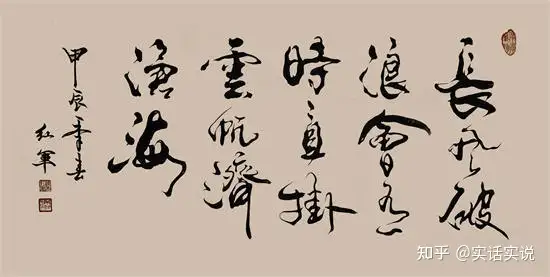 長風破
浪會有
時直掛
雲帆濟
滄海
甲辰年春
紅軍
知乎 @实话实说